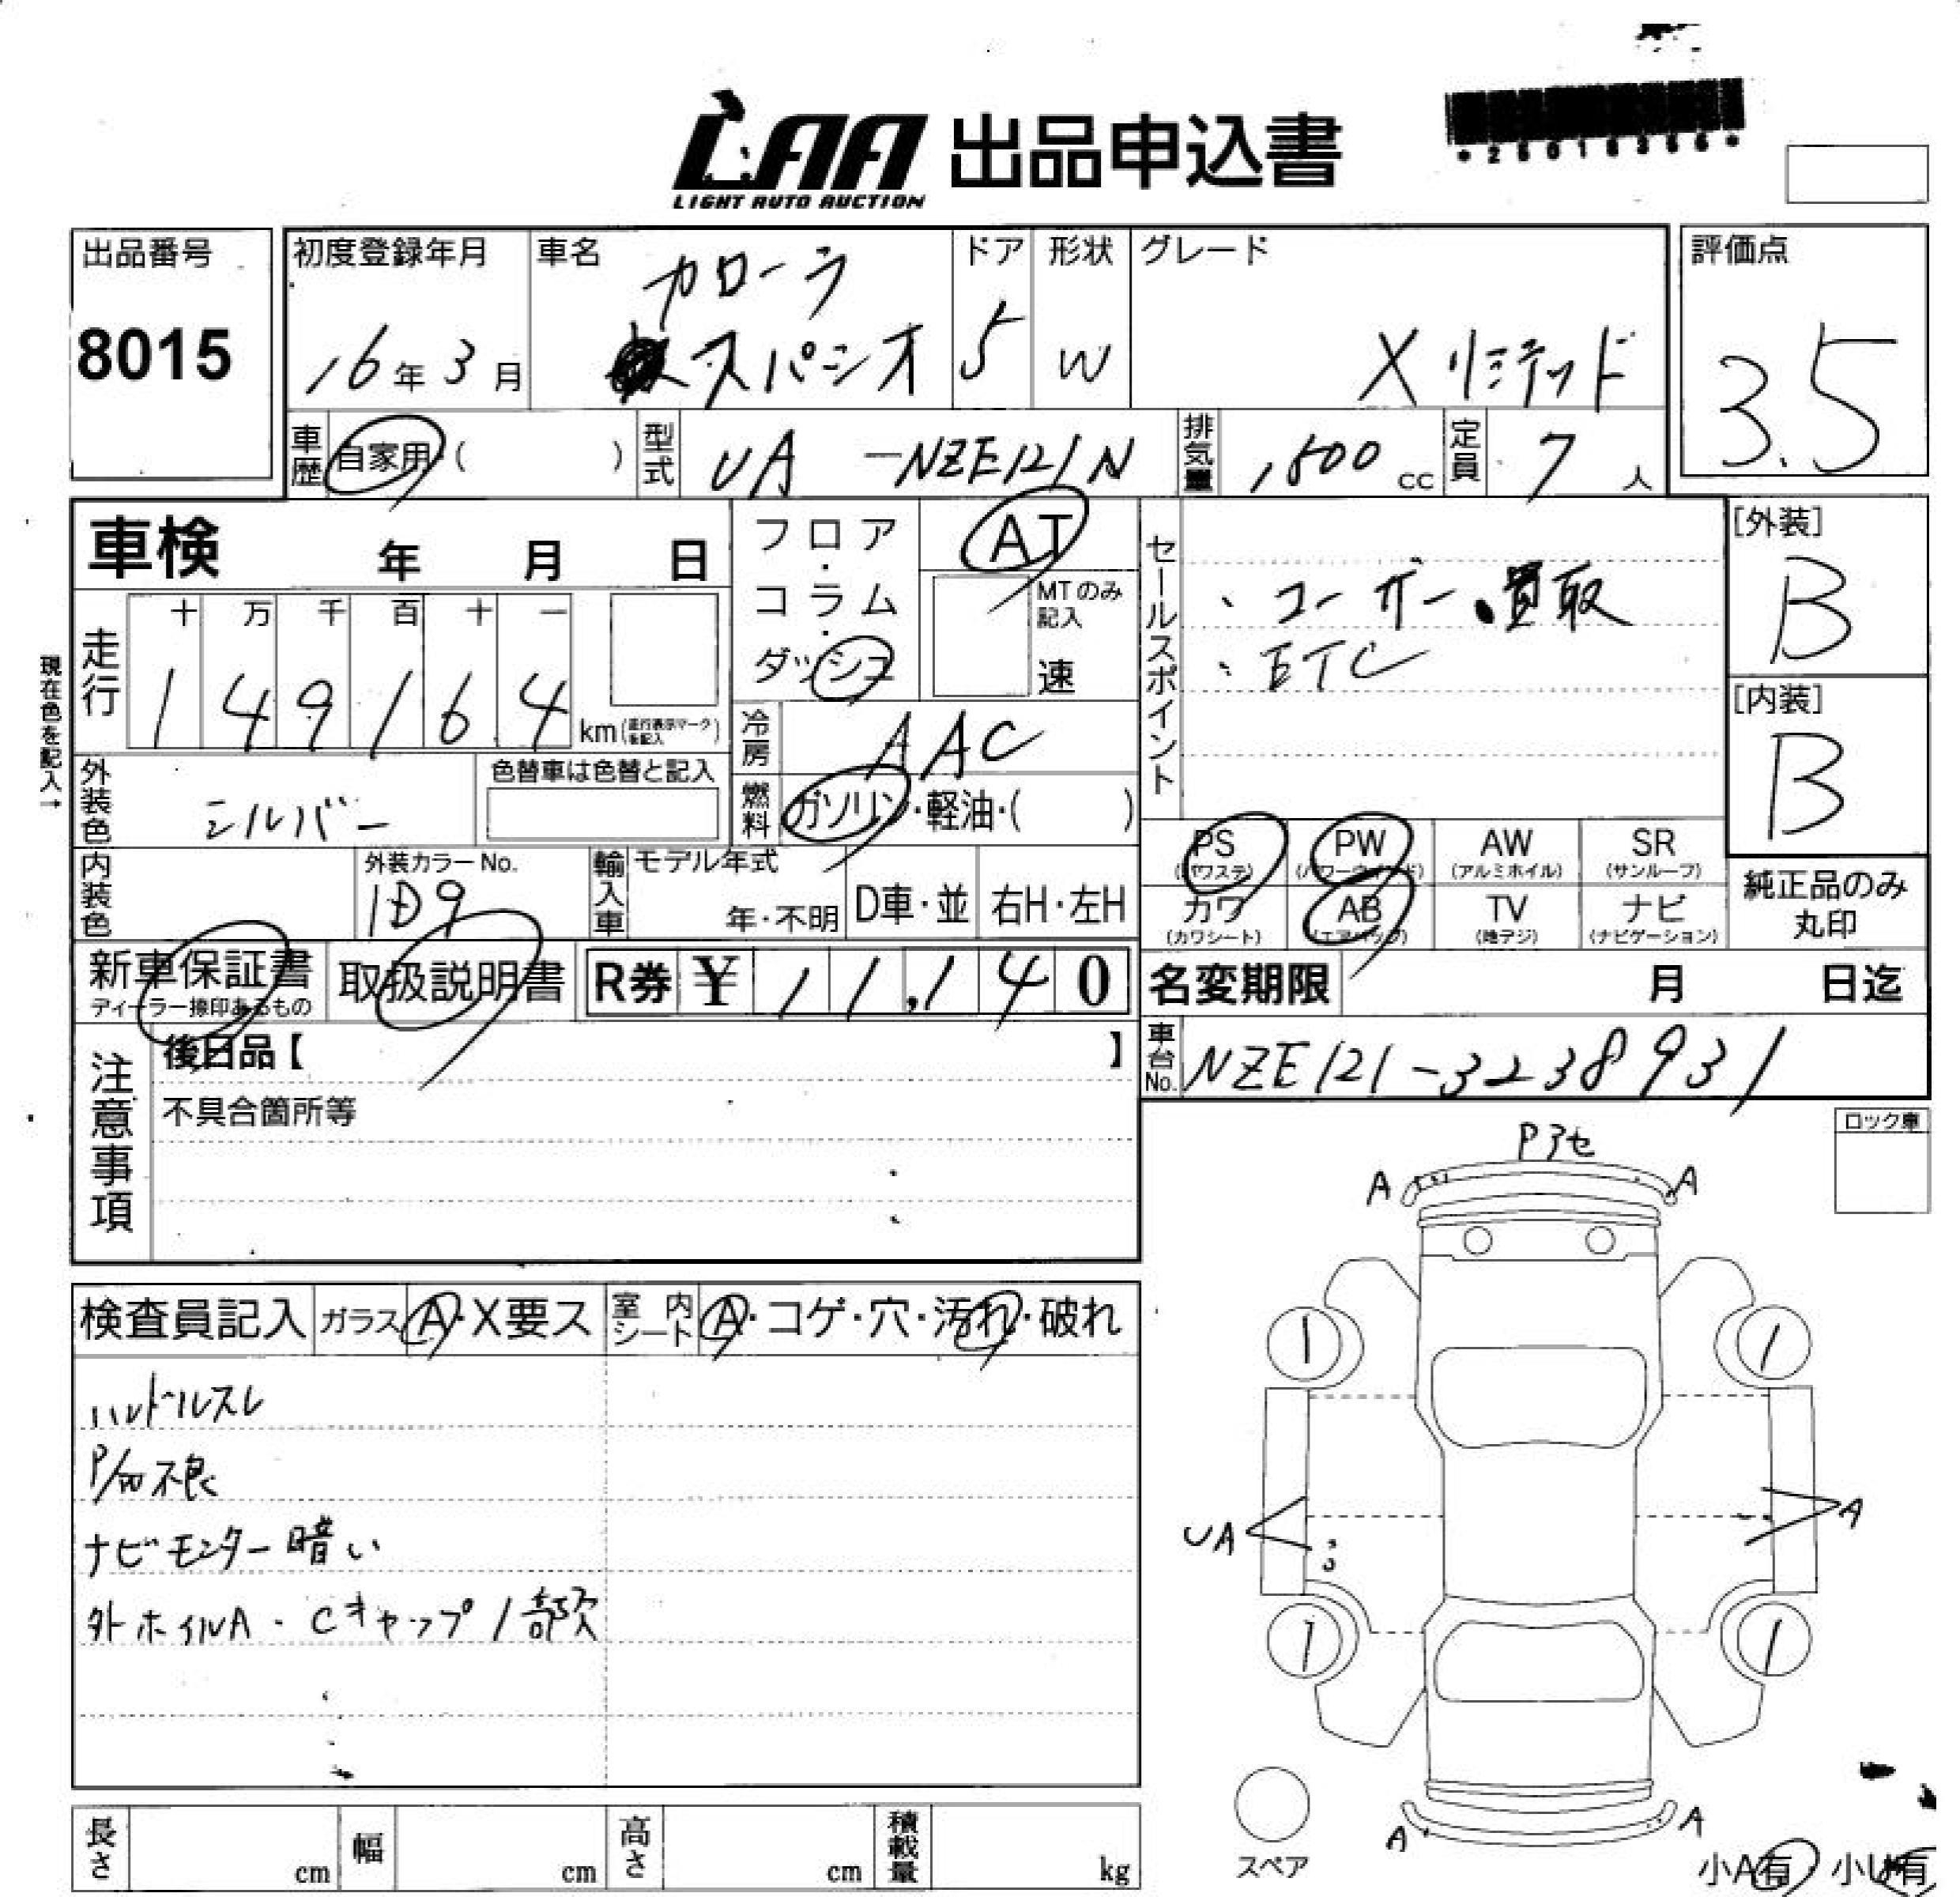 LAA 出品申込書
LIGHT AUTO AUCTION
出品番号
8015
初度登録年月
16年3月
車名
カローラ
スパシオ
ドア
5
形状
W
グレード
Xリミテッド
評価点
3.5
車歴
自家用( )
型式
UA -NZE121N
排気量
1,500cc
定員
7人
車検 年 月 日
走行
十 万 千 百 十 一
1 4 9 1 6 4
km(走行表示マークを記入)
現在色を記入→
フロア・コラム・ダッシュ
AT
MTのみ記入
速
冷房
AAC
燃料
ガソリン・軽油・( )
セールスポイント
、ユーザー買取
、ETC
[外装]
B
[内装]
B
外装色
シルバー
色替車は色替と記入
内装色
外装カラーNo.
1D9
輸入車
モデル年式
年・不明
D車・並
右H・左H
PS
(パワステ)
PW
(パワーウィンド)
AW
(アルミホイル)
SR
(サンルーフ)
カワ
(カワシート)
AB
(エアバッグ)
TV
(地デジ)
ナビ
(ナビゲーション)
純正品のみ
丸印
新車保証書
ディーラー捺印あるもの
取扱説明書
R券 ¥11,140
名変期限 月 日迄
車台No.
NZE121-3238931
注意事項
後日品【 】
不具合箇所等
ロック車
Pアセ
A A
UA
A
A A
検査員記入
ガラス A・X要ス
室内シート A・コゲ・穴・汚れ・破れ
ハンドルスレ
P/W不良
ナビモニター暗い
外ホイルA・Cキャップ1部欠
1 1
1 1
スペア
小A有 小U有
長さ cm
幅 cm
高さ cm
積載量 kg